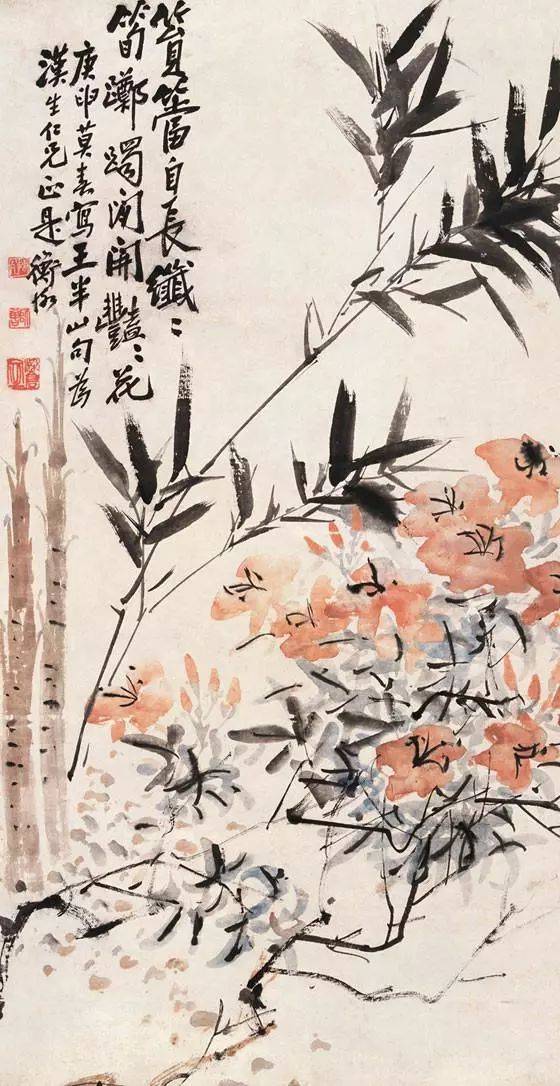 篔簹自長纖〻
筍躑躅閒開豔〻花
庚申莫春寫王半山句为
漢生仁兄正是衡恪